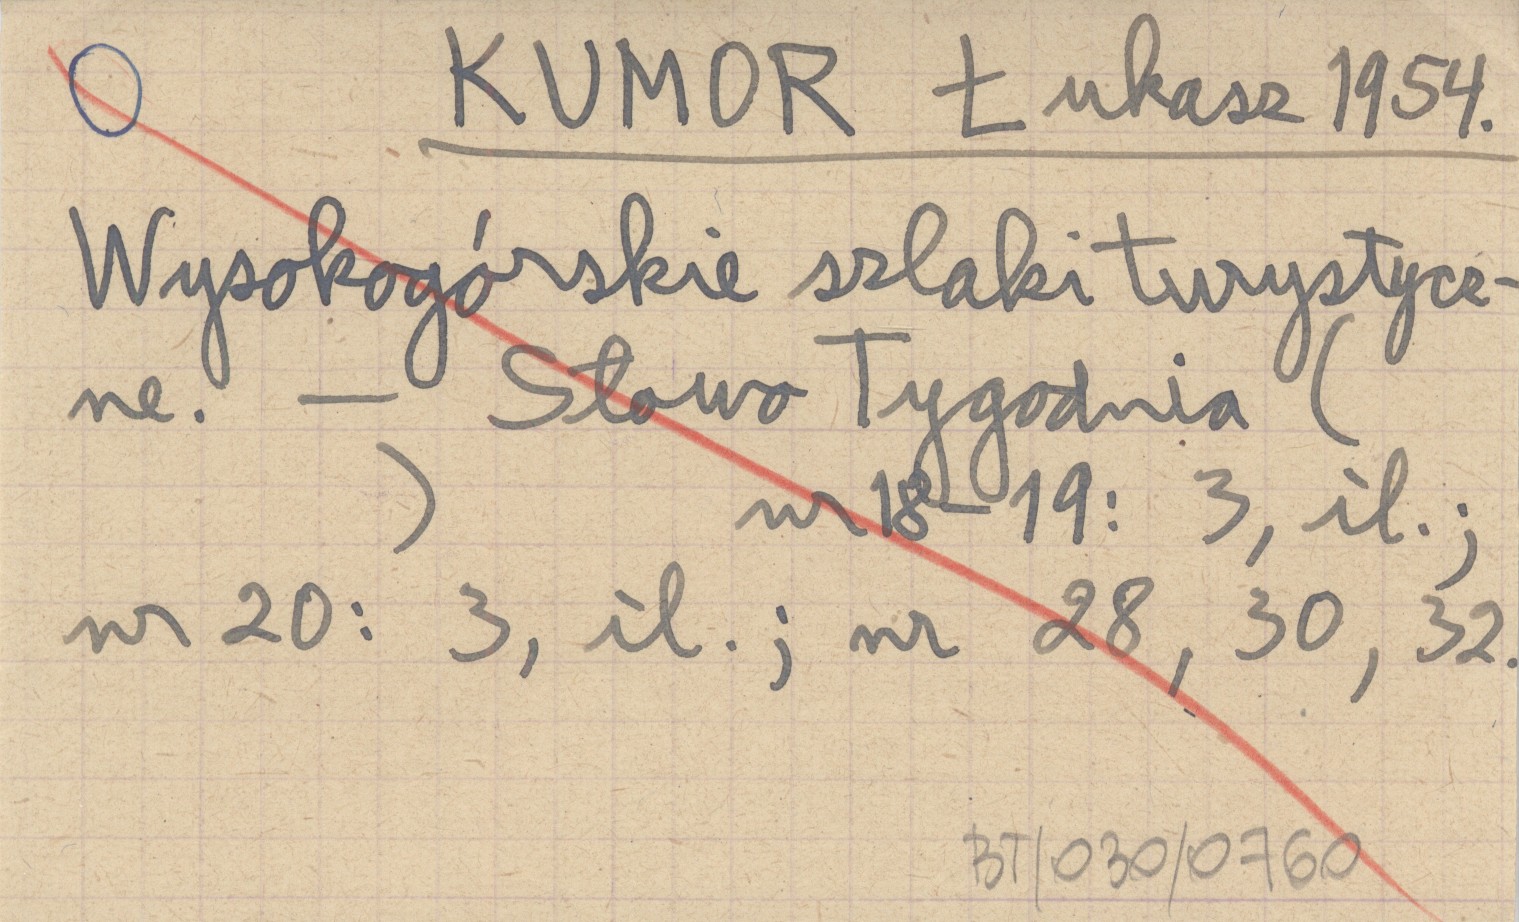 KUMOR Łukasz 1954.
Wysokogórskie szlaki turystycz-
ne. — Słowo Tygodnia (
) nr 18-19: 3, il.;
nr 20: 3, il.; nr 28, 30, 32.
BT/030/0760